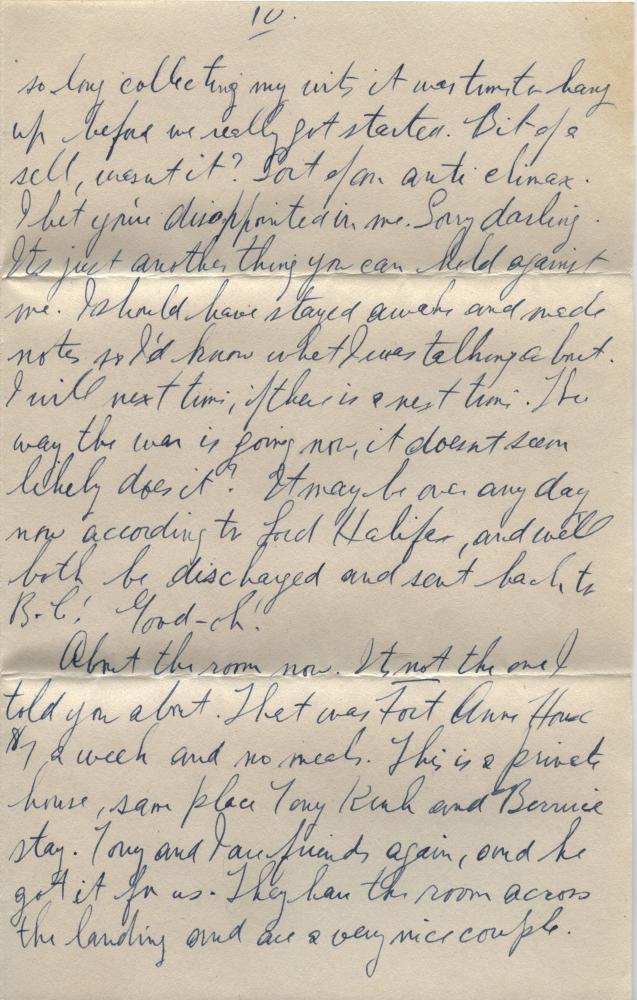 10.
so long collecting my wits it was time to hang
up before we really got started. Bit of a
sell, wasnt it? Sort of an anti climax.
I bet you're disappointed in me. Sorry darling.
Its just another thing you can hold against
me. I should have stayed awake and made
notes so I'd know what I was talking about.
I will next time, if there is a next time. The
way the war is going now, it doesnt seem
likely does it? It may be over any day
now according to Lord Halifax, and we'll
both be discharged and sent back to
B.C.! Good-oh!
About the room now. Its not the one I
told you about. That was Fort Anne House
$7 a week and no meals. This is a private
house, same place Tony and Bernice
stay. Tony and I are friends again, and he
got it for us. They have the room across
the landing and are a very nice couple.